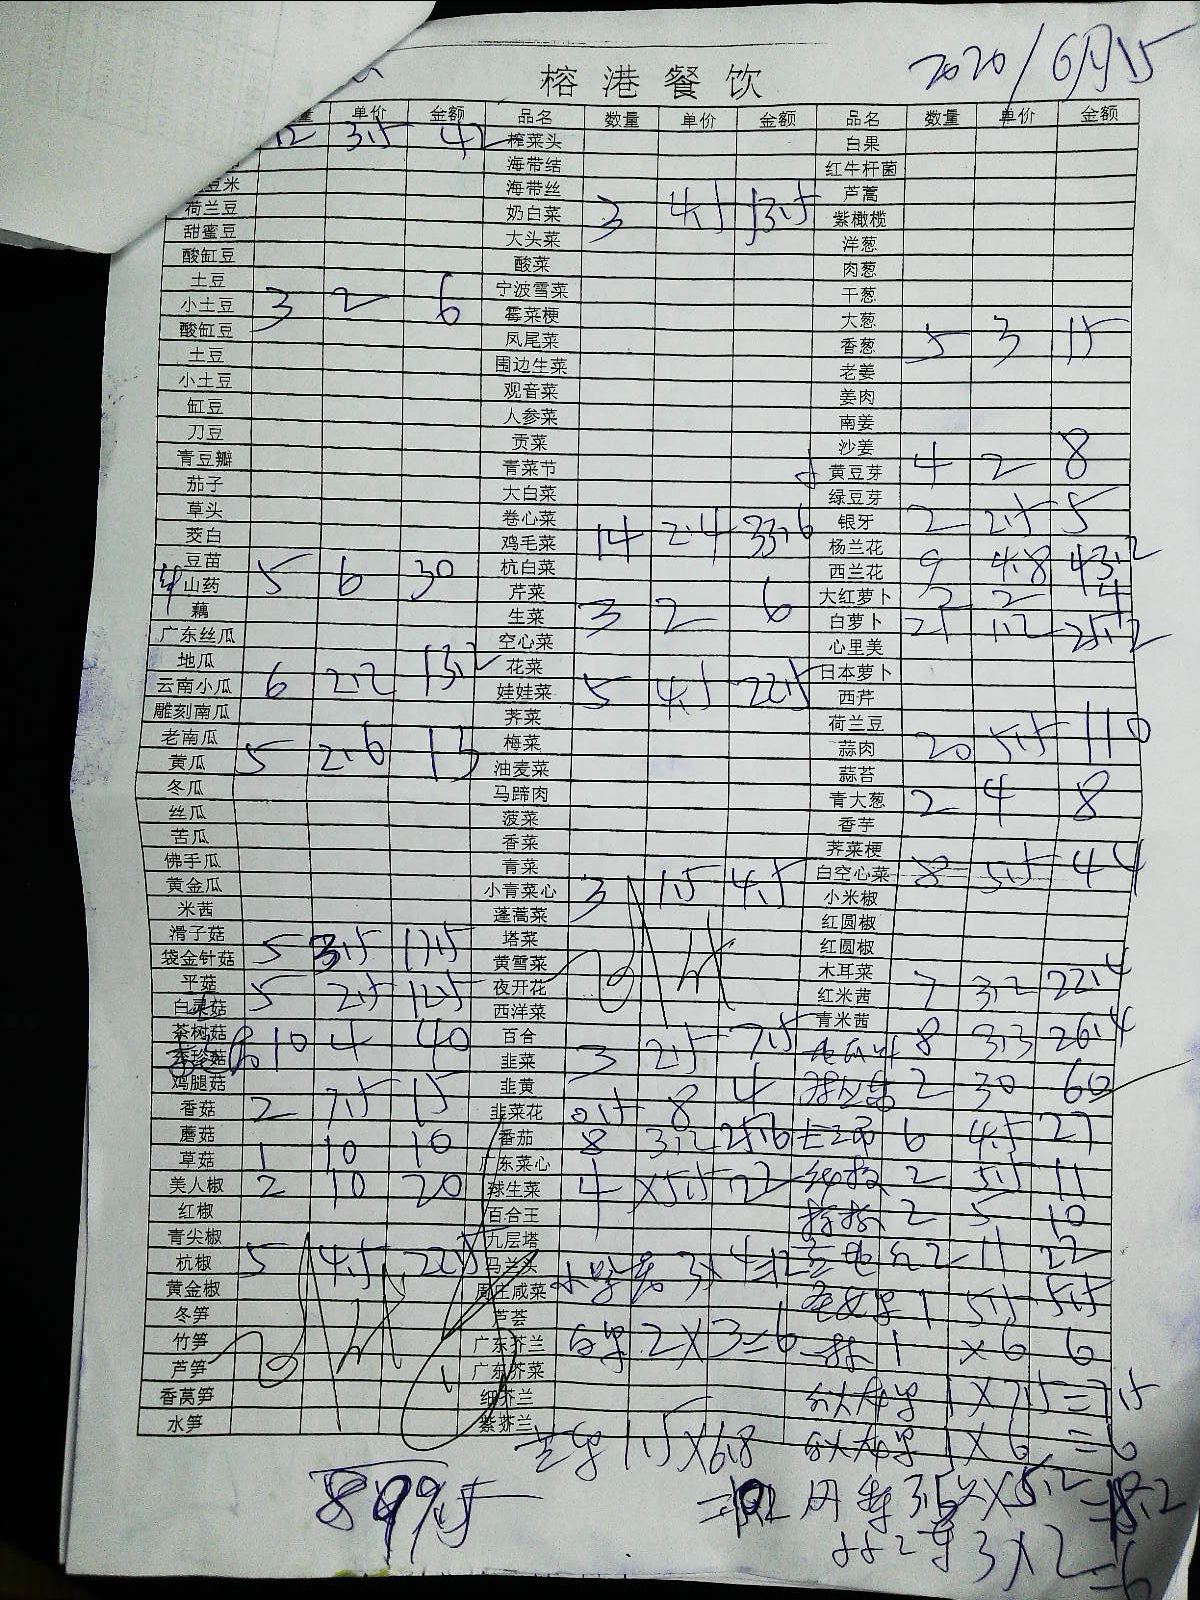 2020/6月15
榕港餐饮
单价 金额 品名 数量 单价 金额 品名 数量 单价 金额
12 3.5 42 榨菜头 白果
海带结 红牛杆菌
豆米 海带丝 芦蒿
荷兰豆 奶白菜 3 4.5 13.5 紫橄榄
甜蜜豆 大头菜 洋葱
酸缸豆 酸菜 肉葱
土豆 宁波雪菜 干葱
小土豆 3 2 6 霉菜梗 大葱
酸缸豆 凤尾菜 香葱 5 3 15
土豆 围边生菜 老姜
小土豆 观音菜 姜肉
缸豆 人参菜 南姜
刀豆 贡菜 沙姜
青豆瓣 青菜节 黄豆芽 4 2 8
茄子 大白菜 绿豆芽
草头 卷心菜 银牙 2 2.5 5
茭白 鸡毛菜 14 2.4 33.6 杨兰花
豆苗 杭白菜 西兰花 9 4.8 43.2
山药 5 6 30 芹菜 大红萝卜 2 2 4
藕 生菜 3 2 6 白萝卜 21 1.2 25.2
广东丝瓜 空心菜 心里美
地瓜 花菜 日本萝卜
云南小瓜 6 2.2 13.2 娃娃菜 5 4.5 22.5 西芹
雕刻南瓜 荠菜 荷兰豆
老南瓜 梅菜 蒜肉 20 5.5 110
黄瓜 5 2.6 13 油麦菜 蒜苔
冬瓜 马蹄肉 青大葱 2 4 8
丝瓜 菠菜 香芋
苦瓜 香菜 荠菜梗
佛手瓜 青菜 白空心菜 8 5.5 44
黄金瓜 小青菜心 3 1.5 4.5 小米椒
米茜 蓬蒿菜 红圆椒
滑子菇 塔菜 红圆椒
袋金针菇 5 3.5 17.5 黄雪菜 木耳菜
平菇 夜开花 红米茜 7 3.2 22.4
白灵菇 5 2.5 12.5 西洋菜 青米茜 8 3.3 26.4
茶树菇 10 4 40 百合
韭菜 3 2.5 7.5
鸡腿菇 韭黄 2 30 60
香菇 2 7.5 15 韭菜花 0.5 8 4
蘑菇 番茄 8 3.2 25.6 6 4.5 27
草菇 1 10 10 广东菜心
美人椒 2 10 20 球生菜 4 ×5.5 22 2 5.5 11
红椒 百合王 2 5 10
青尖椒 九层塔
杭椒 5 4.5 22.5 马兰头 3× 4=12 2 11 22
黄金椒 周庄咸菜 1 5.5 5.5
冬笋 芦荟
竹笋 广东芥兰 2×3=6 1 ×6 6
芦笋 广东芥菜
香莴笋 细芥兰 1×7.5=7.5
水笋 紫芥兰 1×6=6
1.5×6.8
899.5
3.5×5.2=18.2
3×2=6